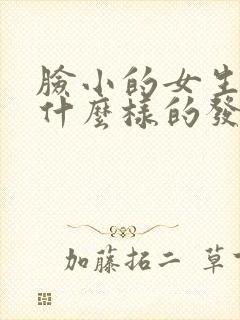 臉小的女生
什麼樣的發
加藤拓二 草